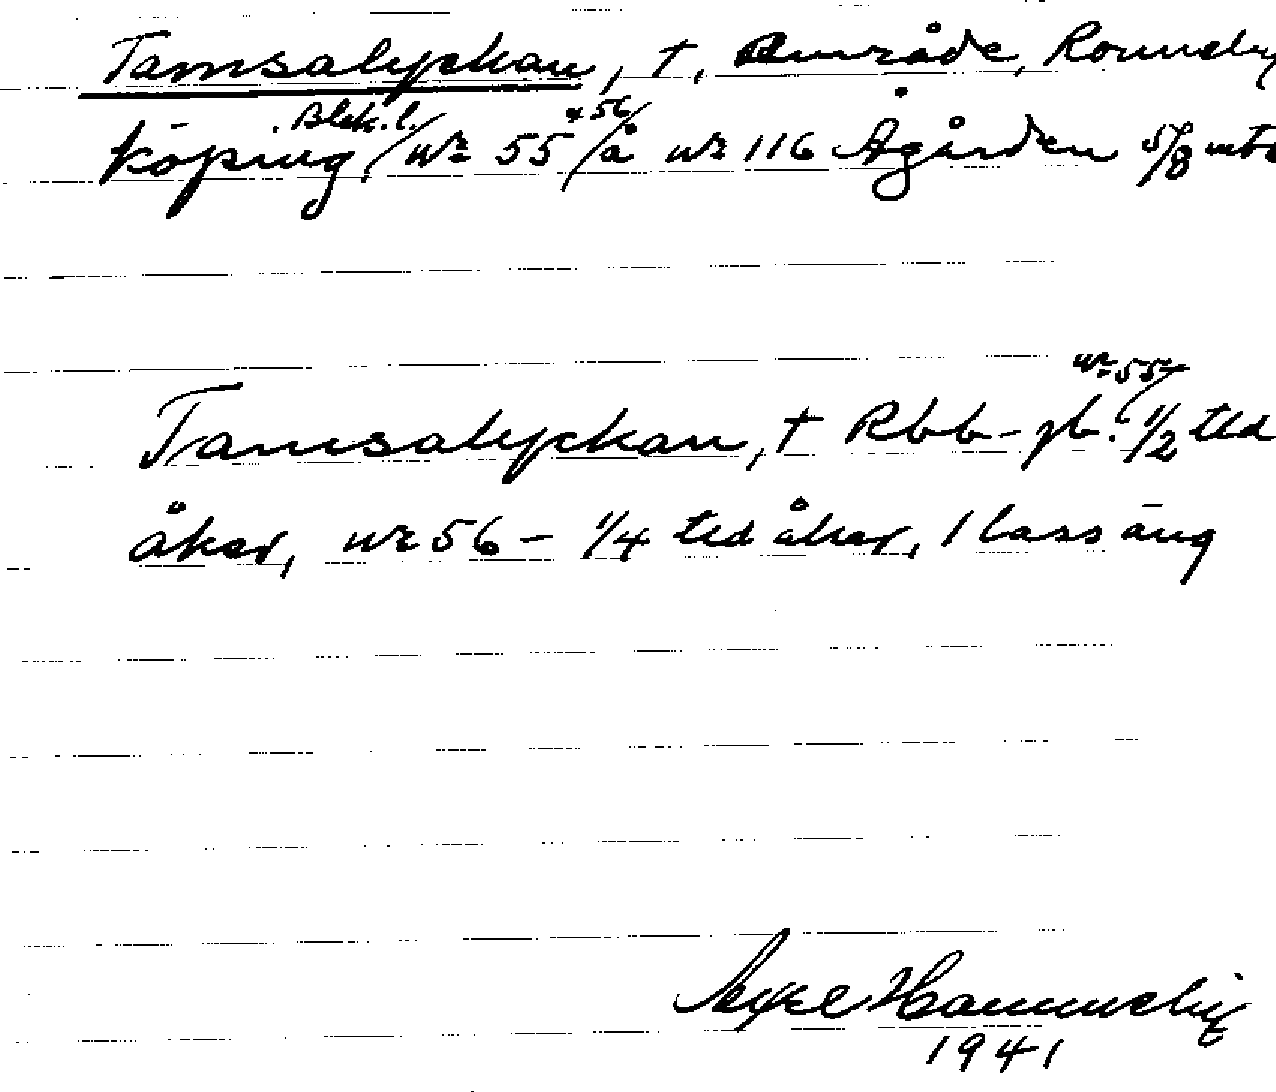 Tamsalyckan, †, Område, Ronneby
köping, Blek. l. nr 55 + 56 å nr 116 Ågården 5/8 mtl
Tamsalyckan, † Rbb-jb. nr 55 1/2 tld
åker, nr 56 - 1/4 tld åker, 1 lass äng
Axel
1941